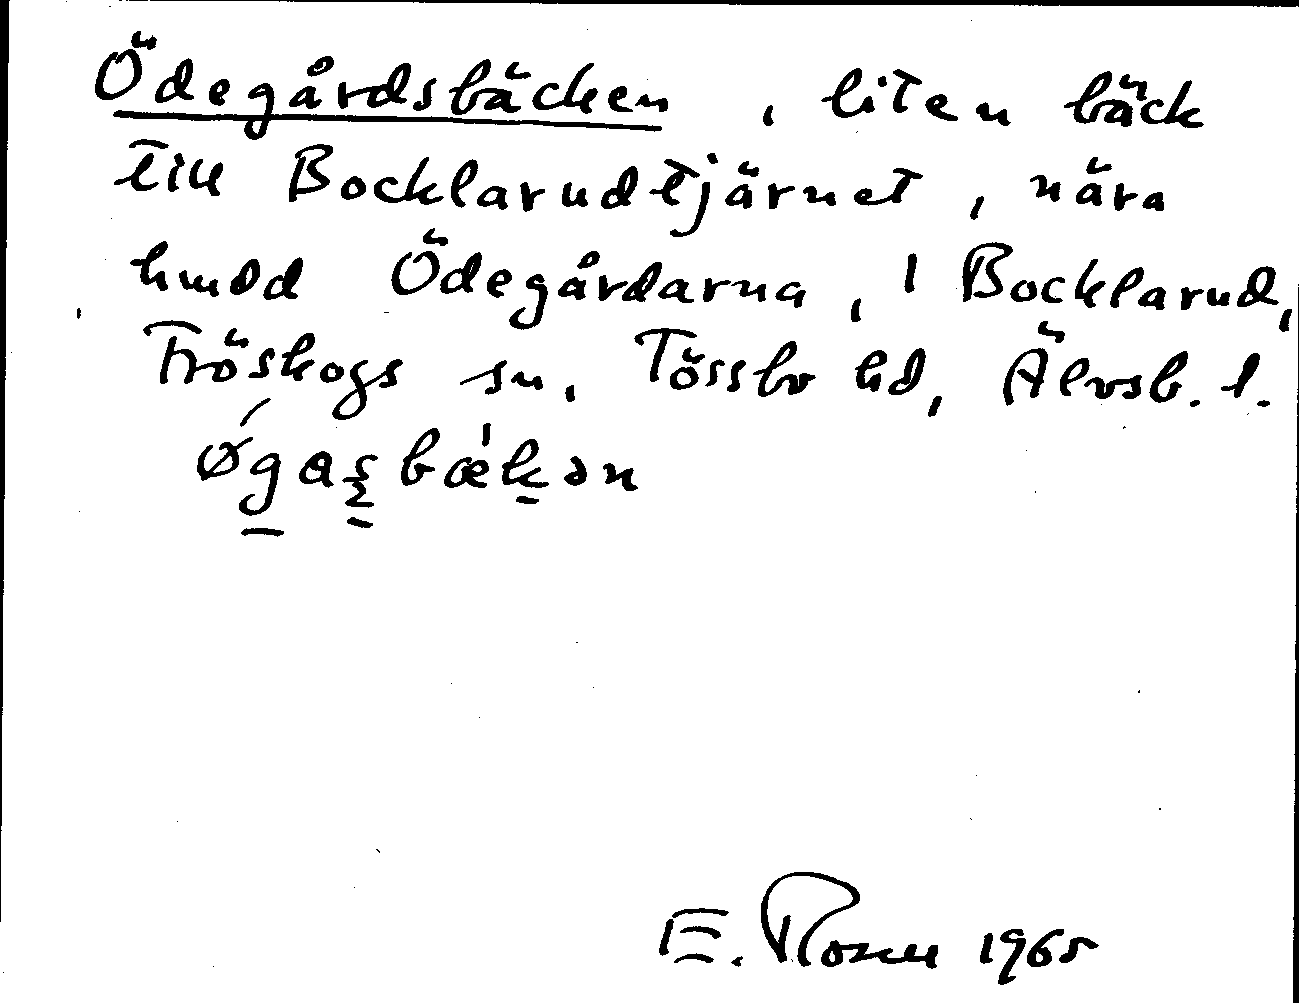 Ödegårdsbäcken, liten bäck
till Bocklarudtjärnet, nära
hmdd Ödegårdarna, i Bocklarud,
Fröskogs sn. Tössbo hd, Älvsb. l.
E. Rosen 1965